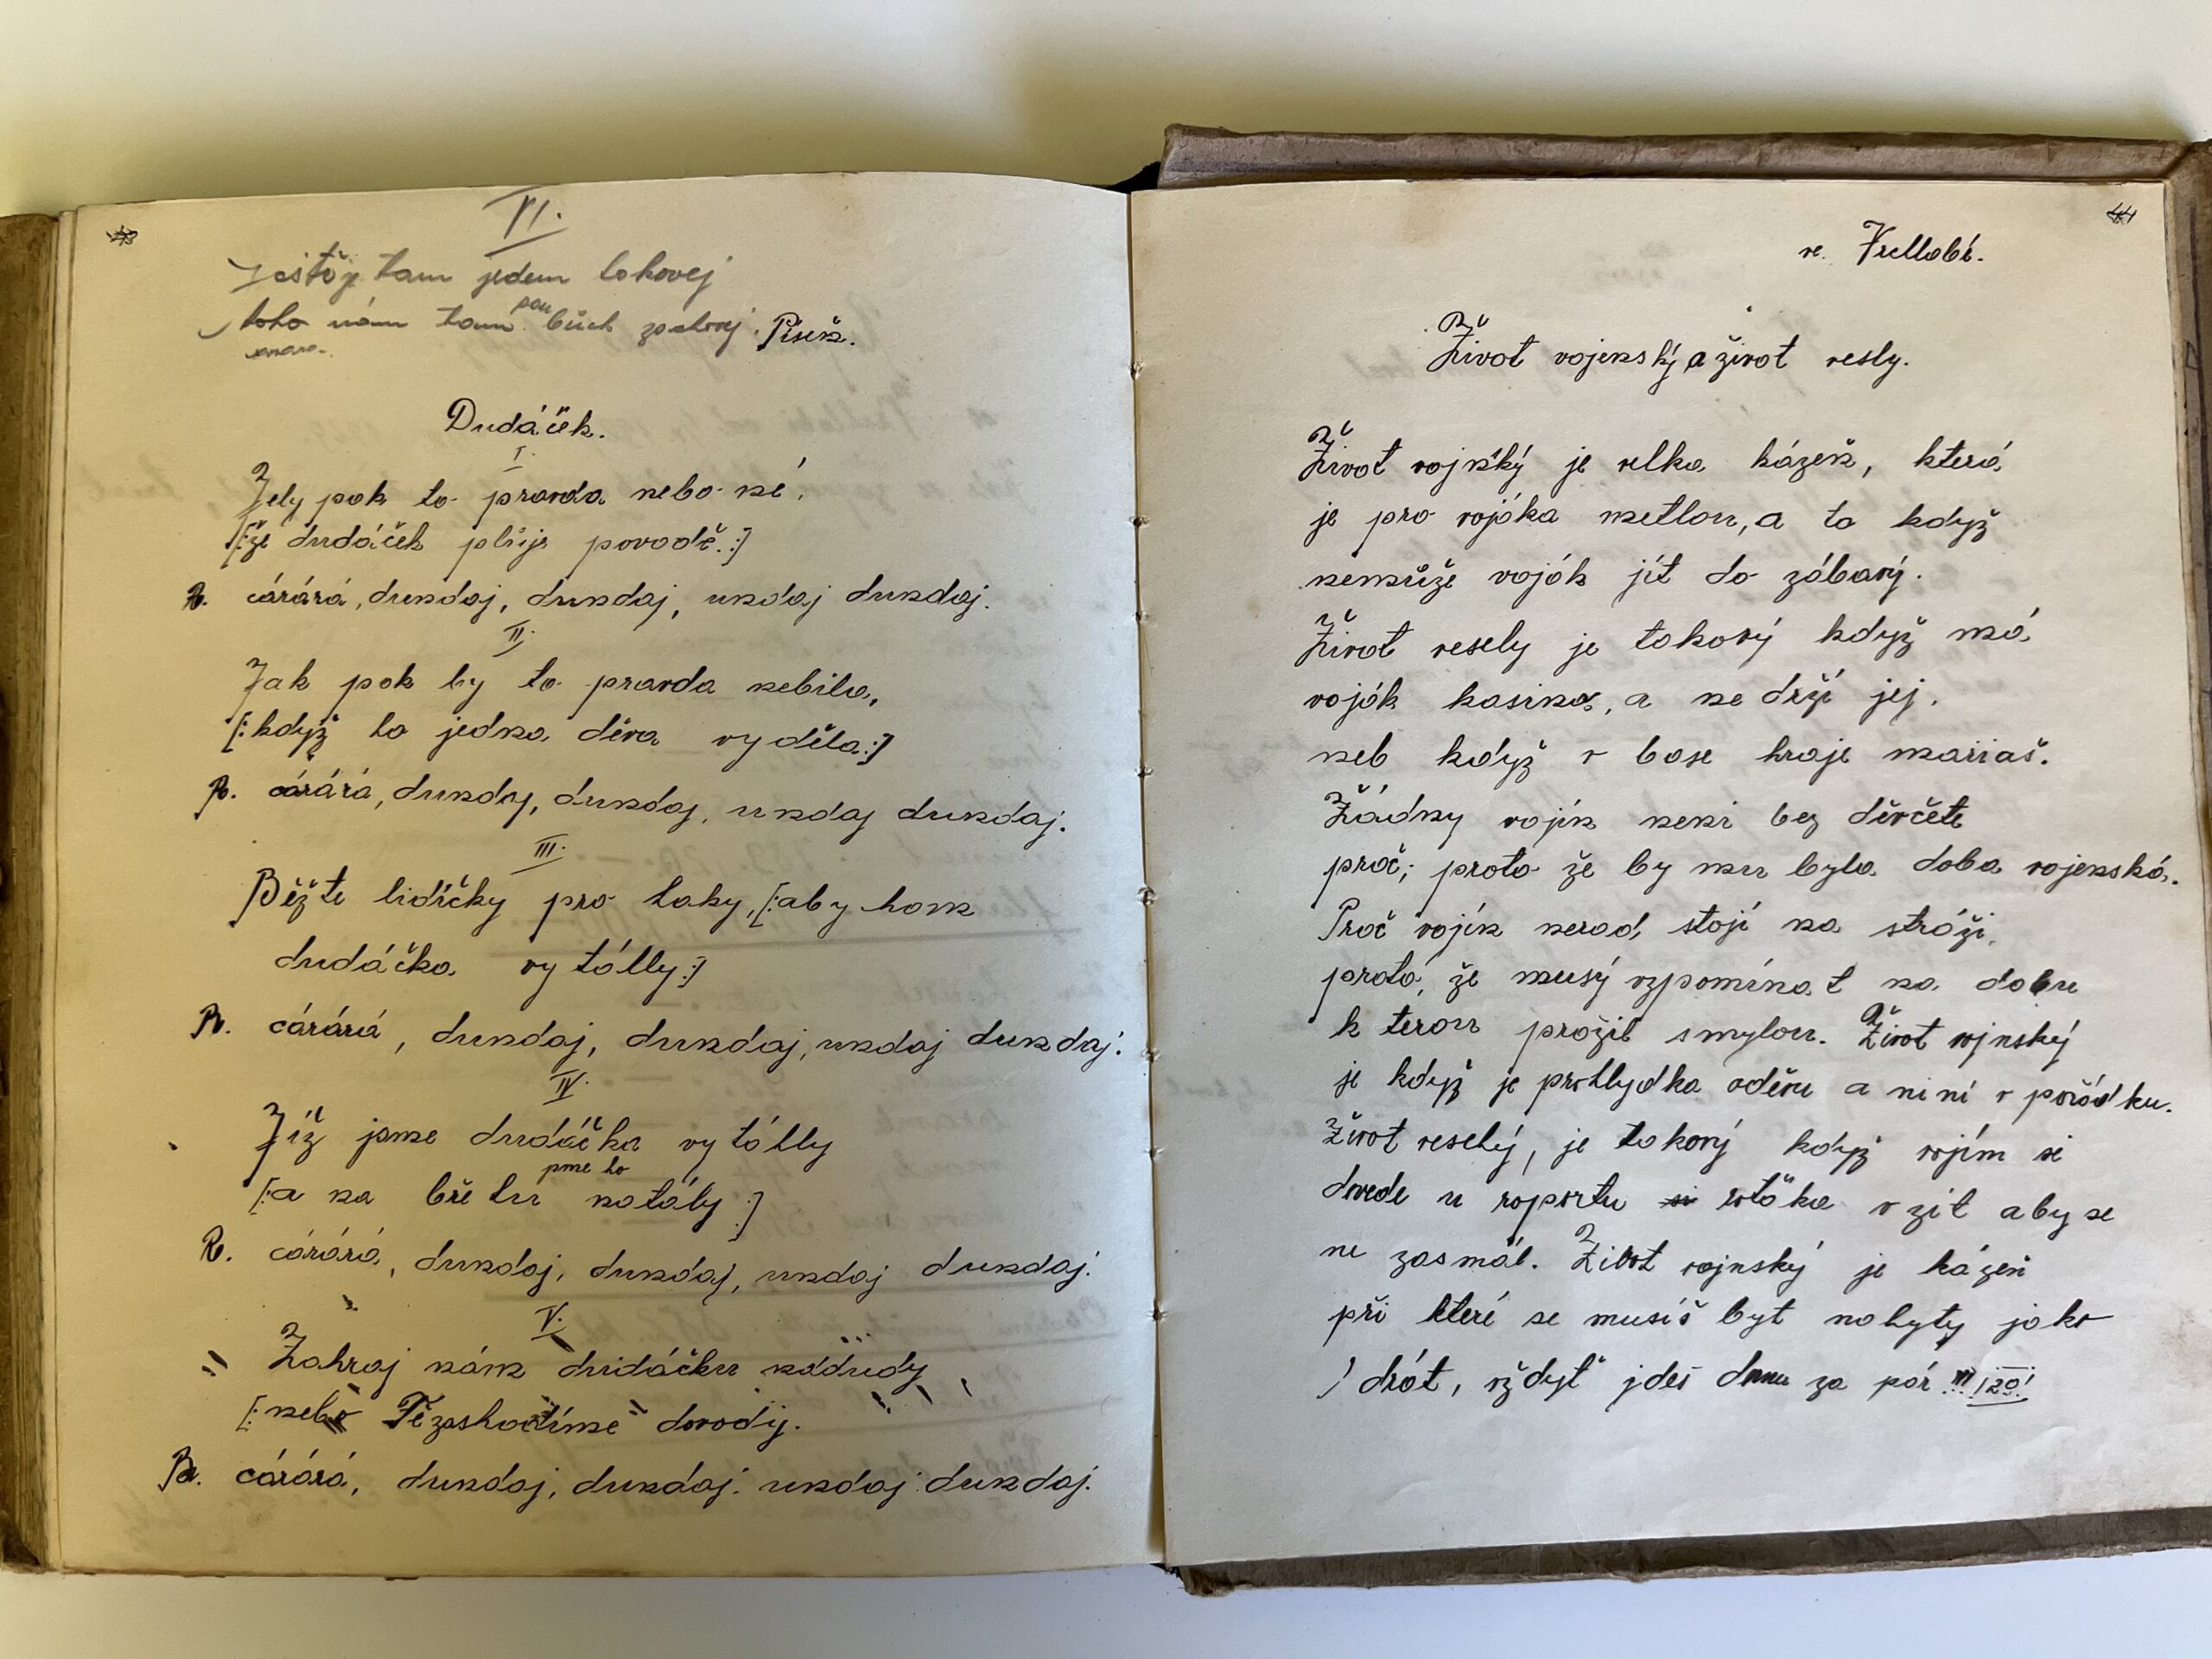 43
VI.
Jestőj tam jeden takovej
toho nám tam pan bůch zachovej. Písek.
Dudáček.
I.
Jely pak to pravda nebo né,
[: že dudáček plůje povodě. :]
R. cárárá, dundaj, dundaj, undaj dundaj.
II.
Jak pak by to pravda nebila,
[: když to jedna děva vyděla :]
R. cárárá, dundaj, dundaj, undaj dundaj.
III.
Běžte lidičky pro haky, [: aby hom
dudáčka vytáhly :]
R. cárárá, dundaj, dundaj, undaj dundaj.
IV.
Již jsme dudáčka vytáhly
[: a na břehu jsme ho natáhly :]
R. cárárá, dundaj, dundaj, undaj dundaj.
V.
Zahraj nám dudáčku nadudy
[: nebo Tězashodíme dovody.
R. cárárá, dundaj, dundaj. undaj dundaj.
44
ve. Vrchlabí.
Život vojenský a život vesly.
Život vojnský je velka kázeň, která
je pro vojáka metlou, a to když
nemůže voják jít do zábavý.
Život vesely je takový když má
voják kasina, a ne drží jej.
neb když v base hraje mariaš.
Žádny vojín není bez děvčete
proč; proto že by mu byla doba vojenská.
Proč vojín nerad, stojí na stráži,
proto, že musý vzpomínat na dobu
k terou prožil smylou. Život vojnský
je když je prohlydka oděvu a nini v pořádku.
Život veselý, je takový když vojím si
dvede u raportu votáka vzít aby se
ne zasmál. Život vojnský je kázeň
při kteri se musiš byt nahyty jako
drát, vždyť jdeš domu za pár !!! 120!